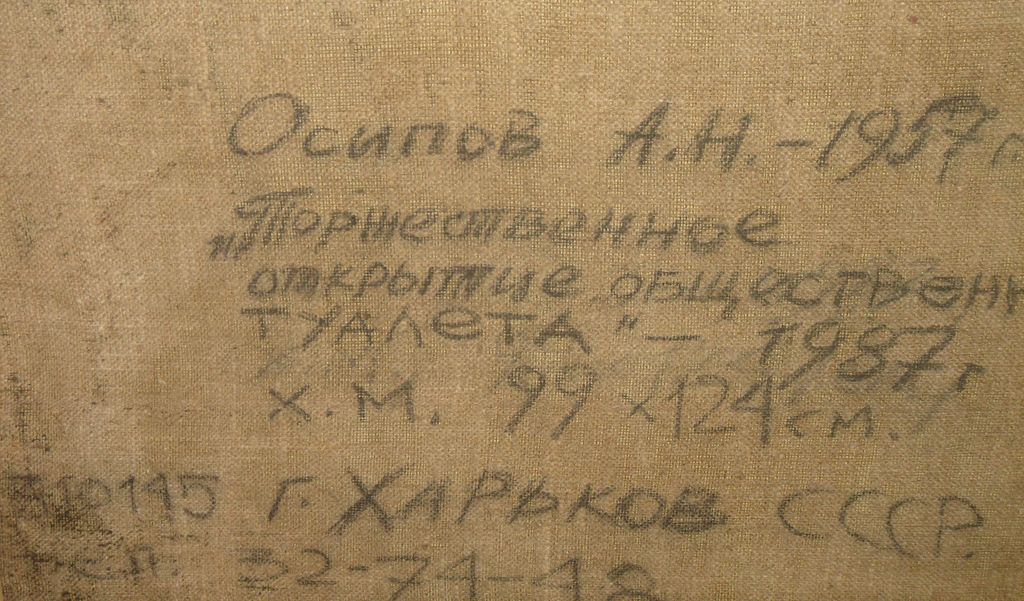 Осипов А.Н. - 1957 г.
"Торжественное
открытие общественн
туалета" — 1987 г
х.м. 99 x 124 см.
310145 г. Харьков СССР.
32-74-48